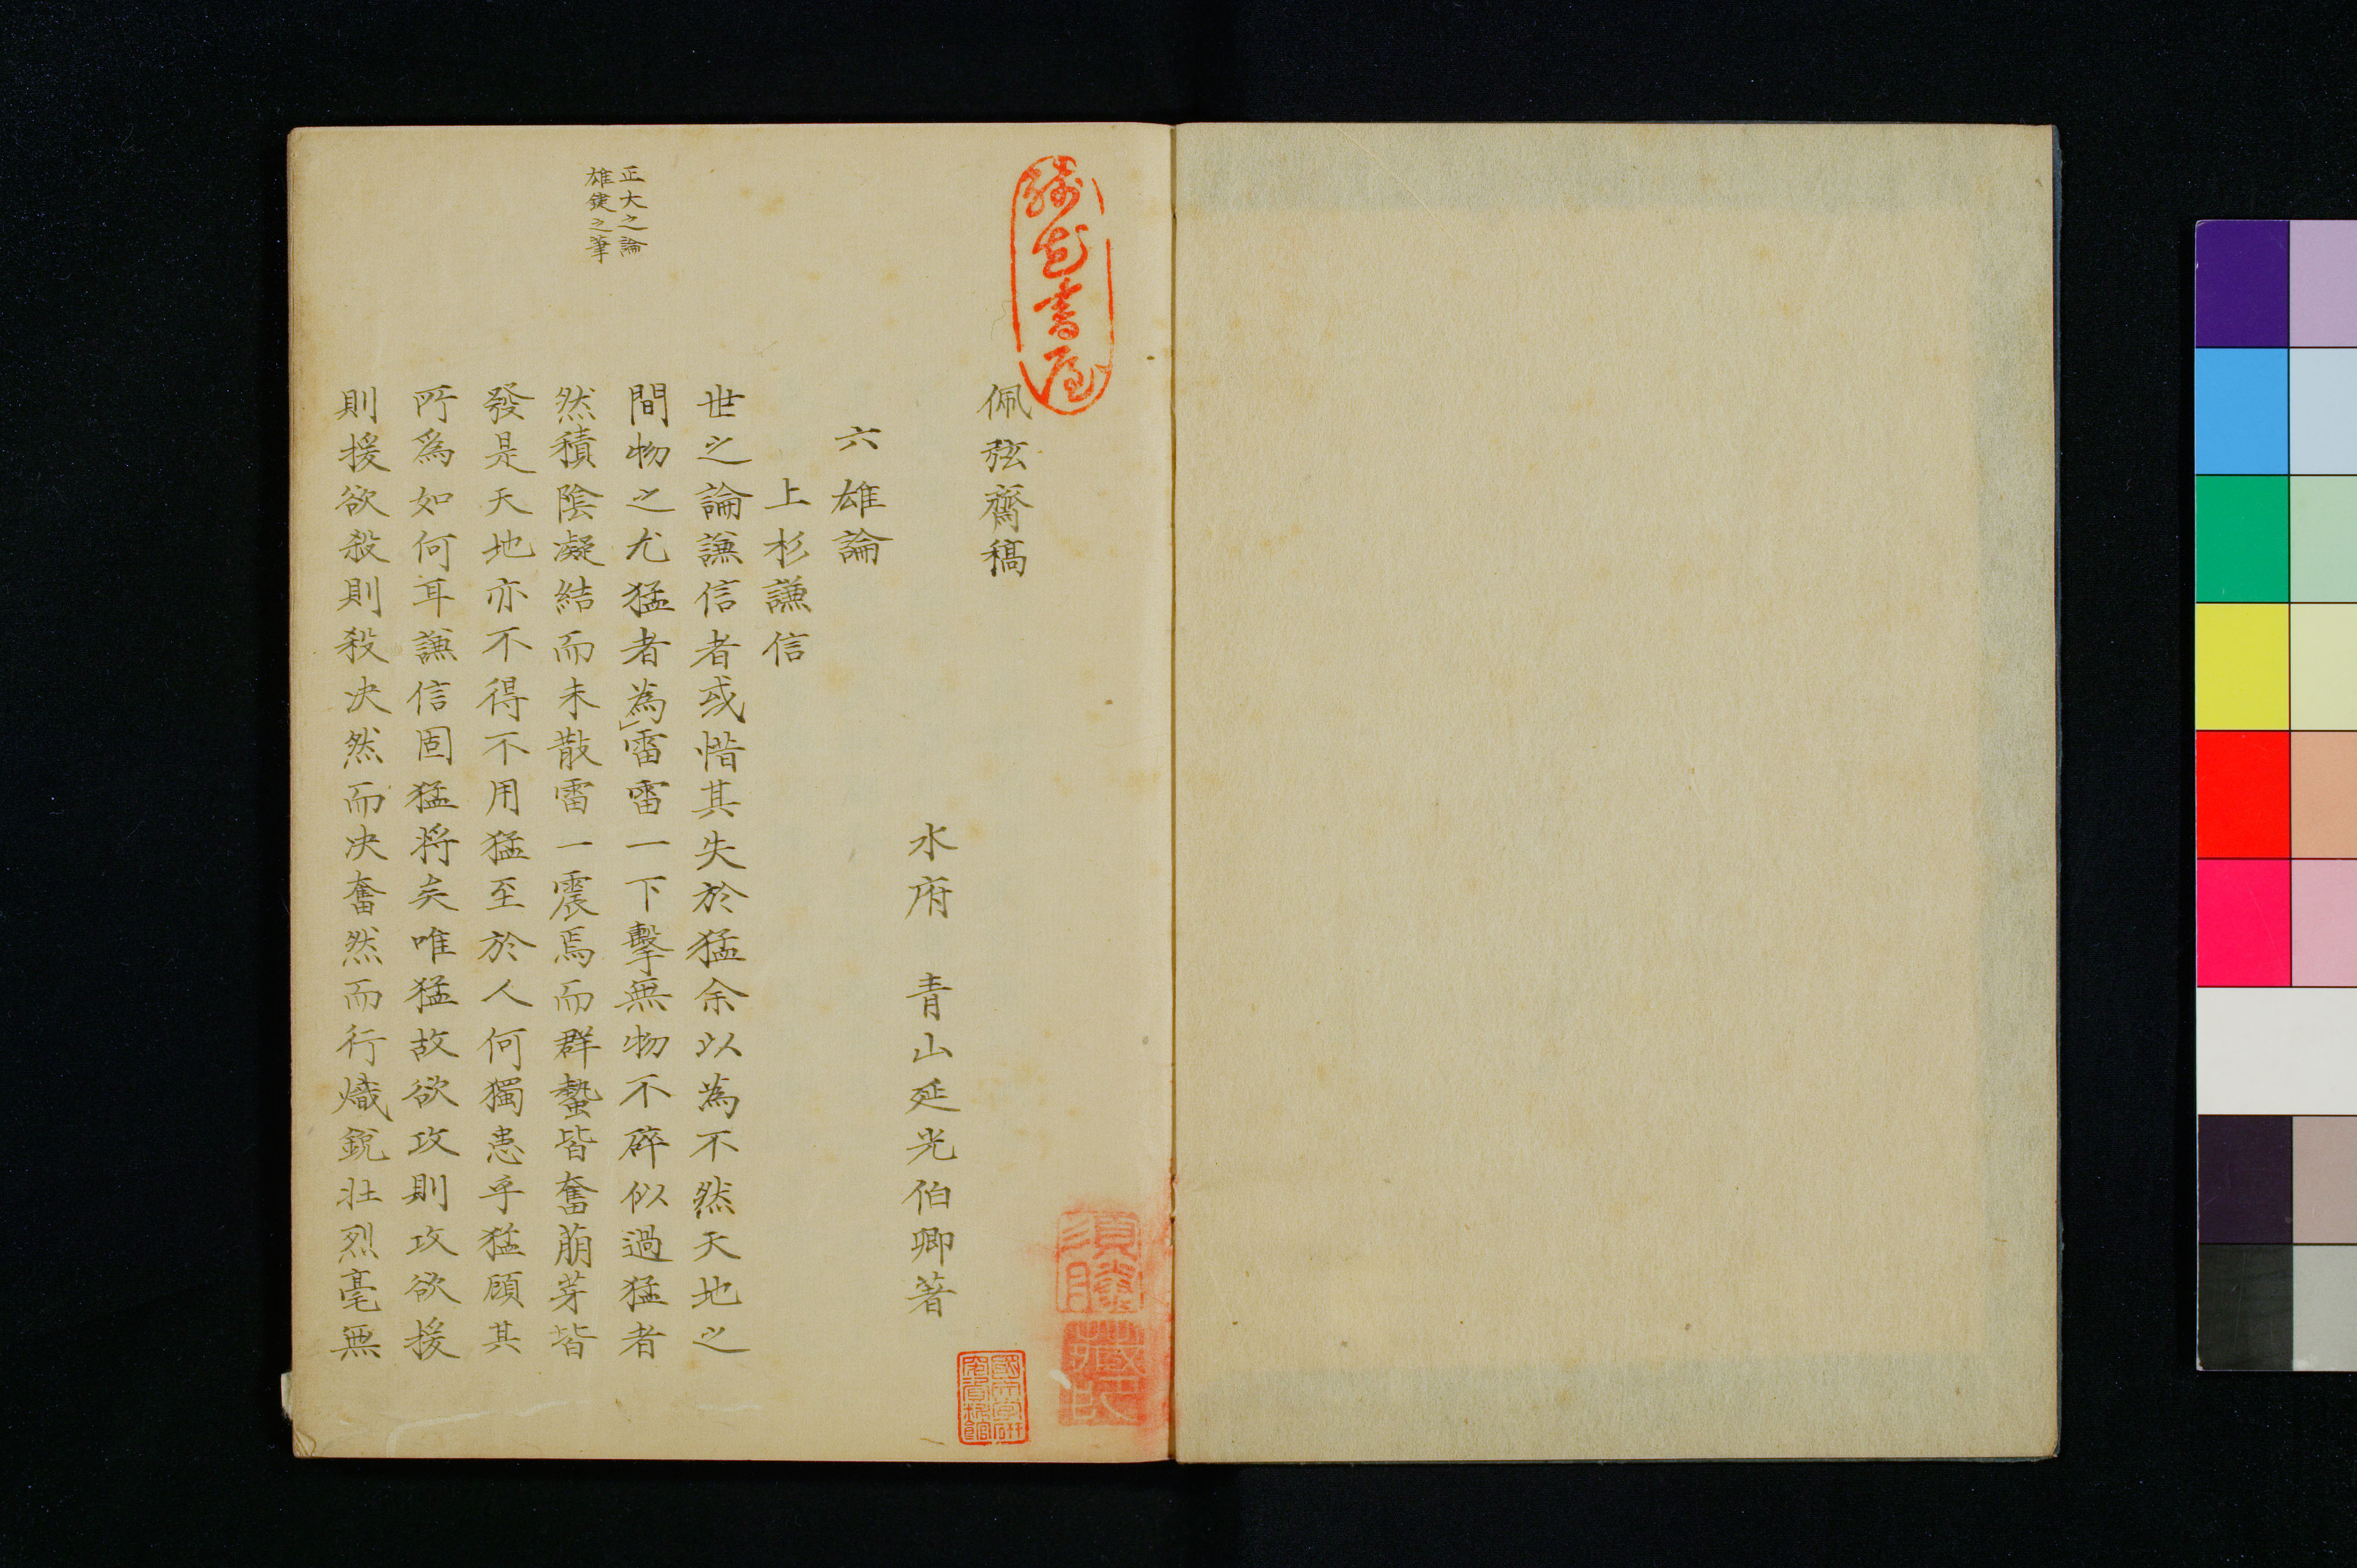 佩弦齋稿
水府 青山延光伯卿著
六雄論
上杉謙信
世之論謙信者或惜其失於猛余以為不然天地之
間物之尤猛者為雷雷一下擊無物不碎似過猛者
然積陰凝結而未散雷一震焉而群蟄皆奮萠芽皆
發是天地亦不得不用猛至於人何獨患乎猛顧其
所爲如何耳謙信固猛将矣唯猛故欲攻則攻欲援
則援欲殺則殺决然而决奮然而行熾銳壮烈毫無
正大之論
雄健之筆
書屋
須賸
藏氏